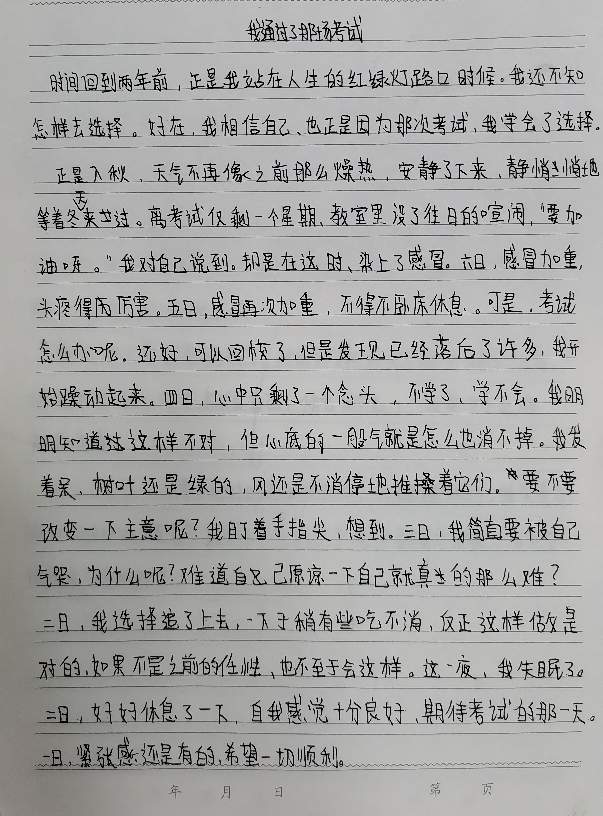 我通过了那场考试
时间回到两年前，正是我站在人生的红绿灯路口时候。我还不知
怎样去选择。好在，我相信自己、也正是因为那次考试，我学会了选择。
正是入秋，天气不再像之前那么燥热，安静了下来，静悄悄地
等着冬天来过。离考试仅剩一个星期、教室里没了往日的喧闹，“要加
油呀。”我对自己说到。却是在这时、染上了感冒。六日，感冒加重，
头疼得厉害。五日，感冒再次加重，不得不卧床休息。可是，考试
怎么办呢。还好，可以回校了，但是发现已经落后了许多，我开
始躁动起来。四日，心中只剩了一个念头，不学了，学不会。我明
明知道这样不对，但心底的一股气就是怎么也消不掉。我发
着呆，树叶还是绿的，风还是不消停地推搡着它们。“要不要
改变一下主意呢？我盯着手指尖，想到。三日，我简直要被自己
气哭，为什么呢？难道自己原谅一下自己就真的那么难？
二日，我选择追了上去，一下子稍有些吃不消，反正这样做是
对的，如果不是之前的任性、也不至于会这样。这一夜，我失眠了。
二日，好好休息了一下，自我感觉十分良好，期待考试的那一天。
一日，紧张感还是有的，希望一切顺利。
年 月 日 第 页